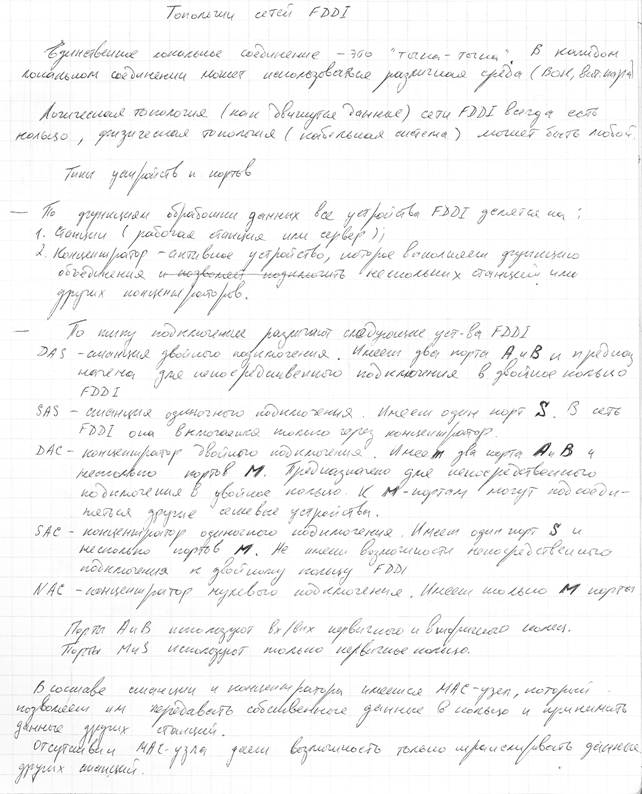 Топологии сетей FDDI
Единственное локальное соединение - это "точка-точка". В каждом
локальном соединении может использоваться различная среда (ВОК, вит.пара)
Логическая топология (как движутся данные) сети FDDI всегда есть
кольцо, физическая топология (кабельная система) может быть любой.
Типы устройств и портов
— По функциям обработки данных все устройства FDDI делятся на:
1. Станции (рабочая станция или сервер);
2. Концентратор - активное устройство, которое выполняет функцию
объединения и позволяет подключить нескольких станций или
других концентраторов.
— По типу подключения различают следующие уст-ва FDDI
DAS - станция двойного подключения. Имеет два порта А и В и предназ
начена для непосредственного подключения в двойное кольцо
FDDI
SAS - станция одиночного подключения. Имеет один порт S. В сеть
FDDI она включается только через концентратор.
DAC - концентратор двойного подключения. Имеет два порта А и В и
несколько портов М. Предназначено для непосредственного
подключения в двойное кольцо. К М-портам могут подсоеди-
няться другие сетевые устройства.
SAC - концентратор одиночного подключения. Имеет один порт S и
несколько портов М. Не имеет возможности непосредственного
подключения к двойному кольцу FDDI
NAC - концентратор нулевого подключения. Имеет только М порты
Порты А и В используют вх/вых первичного и вторичного колец.
Порты М и S используют только первичное кольцо.
В составе станции и концентратора имеется МАС-узел, который
позволяет им передавать собственные данные в кольцо и принимать
данные других станций.
Отсутствии МАС-узла дает возможность только транслировать данные
других станций.